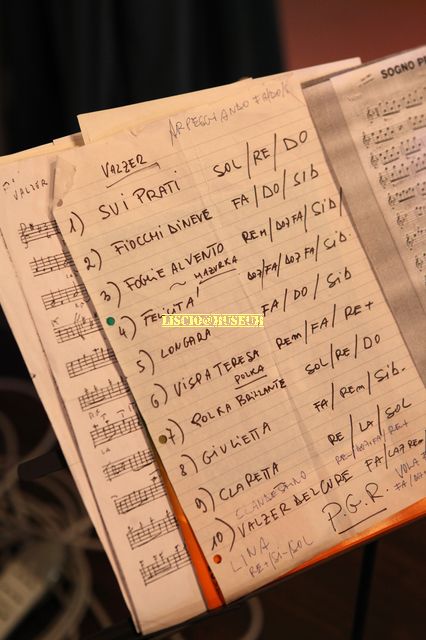 SOGNO PR
ARPEGGIANDO FA/DO/S
VALZER
VALZER
1) SUI PRATI SOL/RE/DO
2) FIOCCHI DI NEVE FA/DO/SIb
3) FOGLIE AL VENTO REM/DO7FA/SIb/
~ MAZURKA
4) FELICITA' DO7/FA/DO7FA/SIb
LISCIO@MUSEUM
5) LONGARA FA/DO/SIb
6) VISPA TERESA REM/FA/RE+
POLKA
7) POLKA BRILLANTE SOL/RE/DO
8) GIULIETTA FA/REM/SIb-
9) CLARETTA RE/LA/SOL
CLANDESTINO
10) VALZER DEL CUORE FA/LA7REM/
LINA P.G.R. VOLA
RE+/SI-/SOL FA/